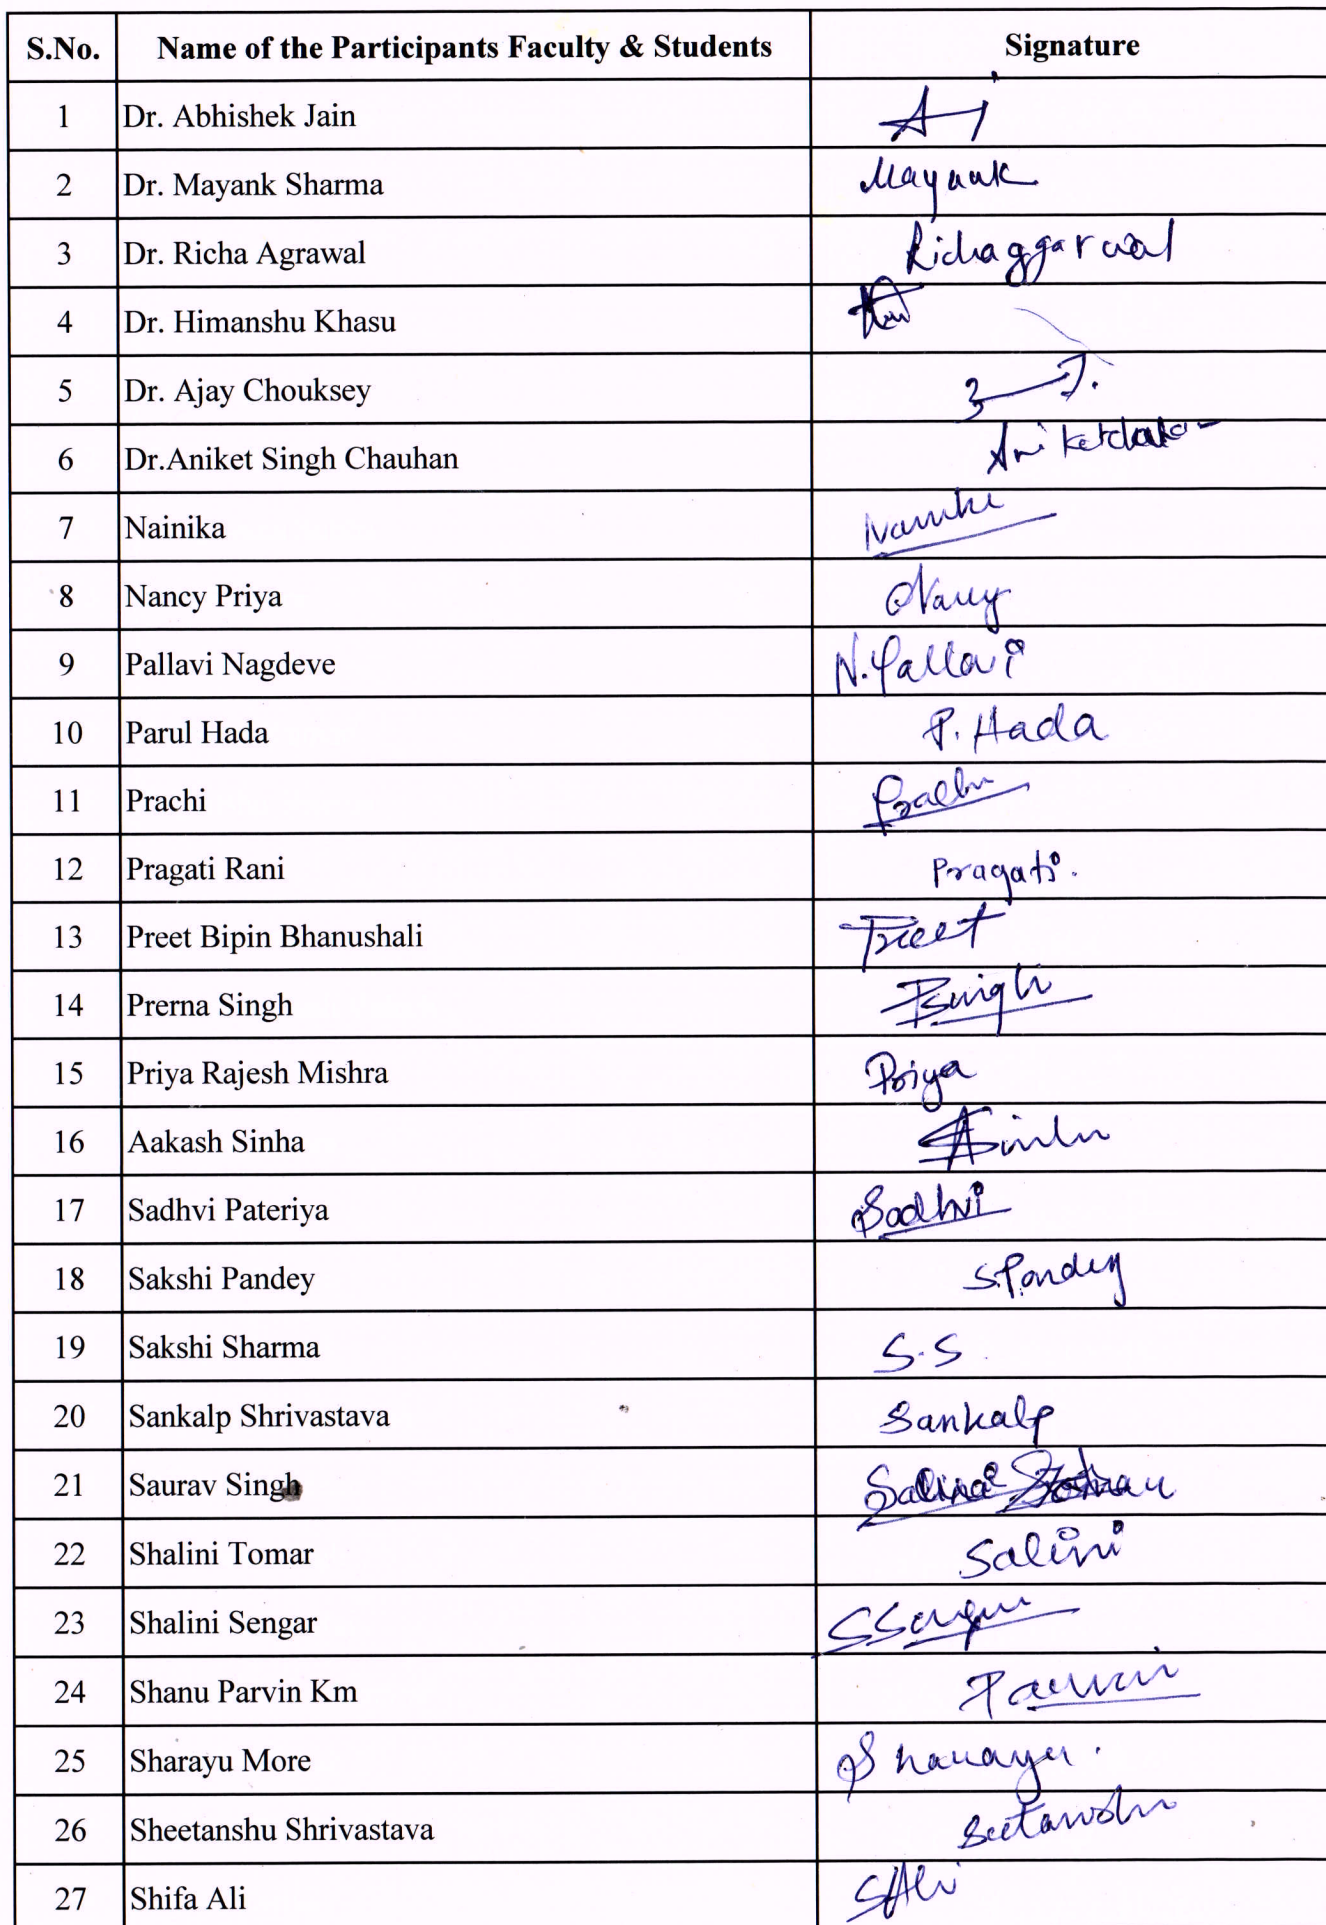 S.No. Name of the Participants Faculty & Students Signature
1 Dr. Abhishek Jain
2 Dr. Mayank Sharma Mayank
3 Dr. Richa Agrawal Richaggarwal
4 Dr. Himanshu Khasu
5 Dr. Ajay Chouksey
6 Dr.Aniket Singh Chauhan
7 Nainika
8 Nancy Priya Nancy
9 Pallavi Nagdeve N.Pallavi
10 Parul Hada P. Hada
11 Prachi
12 Pragati Rani Pragati.
13 Preet Bipin Bhanushali Preet
14 Prerna Singh PSingh
15 Priya Rajesh Mishra Priya
16 Aakash Sinha
17 Sadhvi Pateriya Sadhvi
18 Sakshi Pandey S.Pandey
19 Sakshi Sharma S.S
20 Sankalp Shrivastava Sankalp
21 Saurav Singh
22 Shalini Tomar Salini
23 Shalini Sengar SSengar
24 Shanu Parvin Km Parvin
25 Sharayu More Sharayu.
26 Sheetanshu Shrivastava Seetanshu
27 Shifa Ali SAli